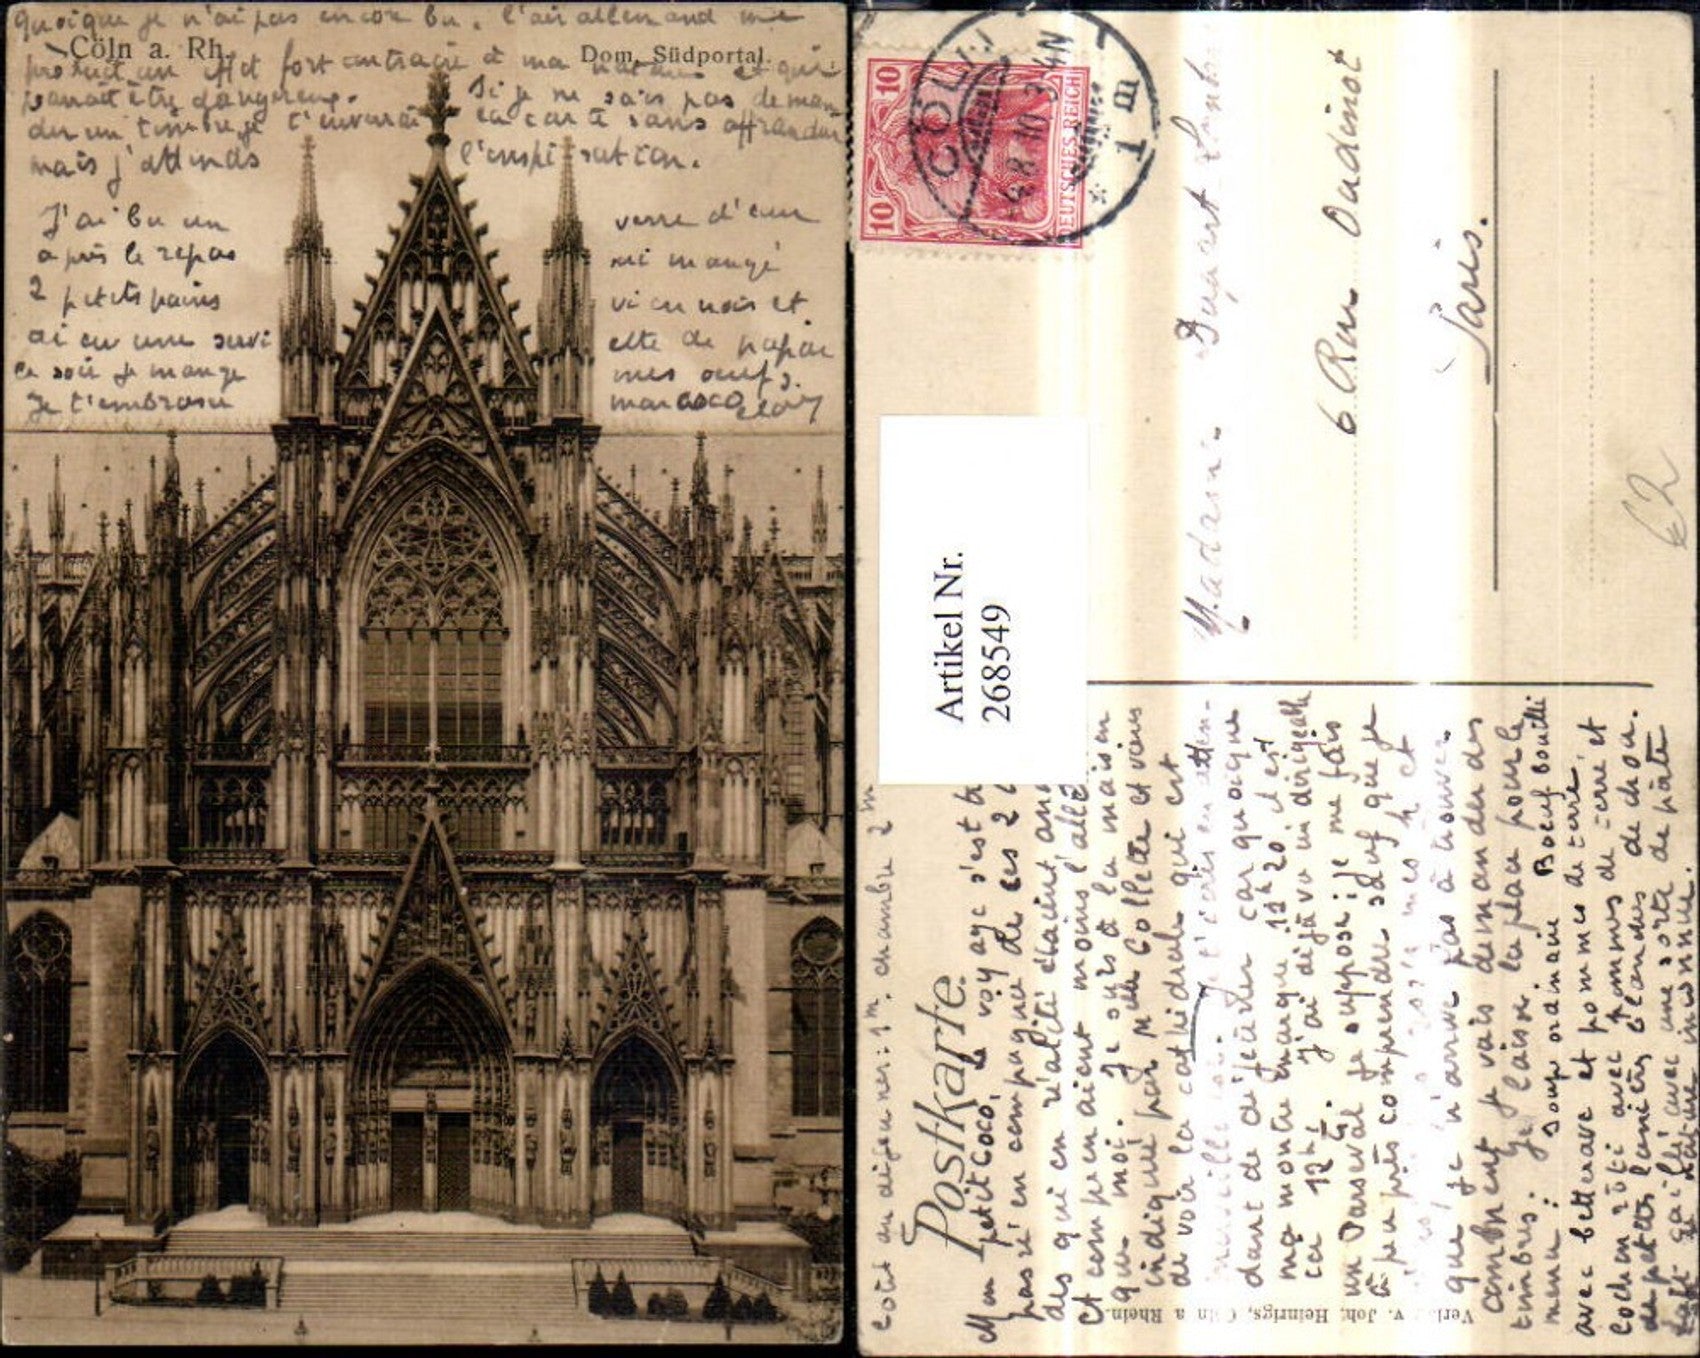 quoique je n'ai pas encore bu. l'air allemand me
Cöln a. Rh.
Dom, Südportal.
produit un effet fort contraire à ma nature et qui
paraît être dangereux.
Si je ne sais pas deman
der un timbre je t'enverrai
la carte sans affranchir
mais j'attends
l'inspiration.
J'ai bu un
verre d'eau
après le repas
ai mangé
2 petits pains
viennois et
ai eu une servi
ette de papier
ce soir je mange
mes oeufs.
Je t'embrasse
mon coco
10
10
DEUTSCHES REICH
CÖLN
1 m
4.8.10. 3-4N
Madame
6 Rue Oudinot
Paris.
€2
Artikel Nr.
268549
Postkarte
coût du déjeuner: 1 m. chambre 2 m
Mon petit Coco, le voyage s'est
passé en compagnie de ces 2
des qui en réalité étaient
et comprenaient moins l'alle
que moi. Je suis à la maison
indiquée par Mlle Collette et vais
de voir la cathédrale qui est
je t'écris en atten-
dant de déjeuner car quoique
ma montre marque 1h20 il est
ici 12h1/4. J'ai déjà vu un dirigeable
un Parseval je suppose; je me fais
à peu près comprendre sauf que je
que je n'arrive pas à trouver
comment je vais demander des
timbres. Je laisse la place pour le
menu: soupe ordinaire Boeuf bouilli
avec betterave et pommes de terre,
cochon rôti avec pommes de terre et
de petites lanières blanches de chou.
Café gai avec une sorte de pâte
de nature inconnue.
Verl. v. Joh. Heinrigs, Cöln a Rhein.